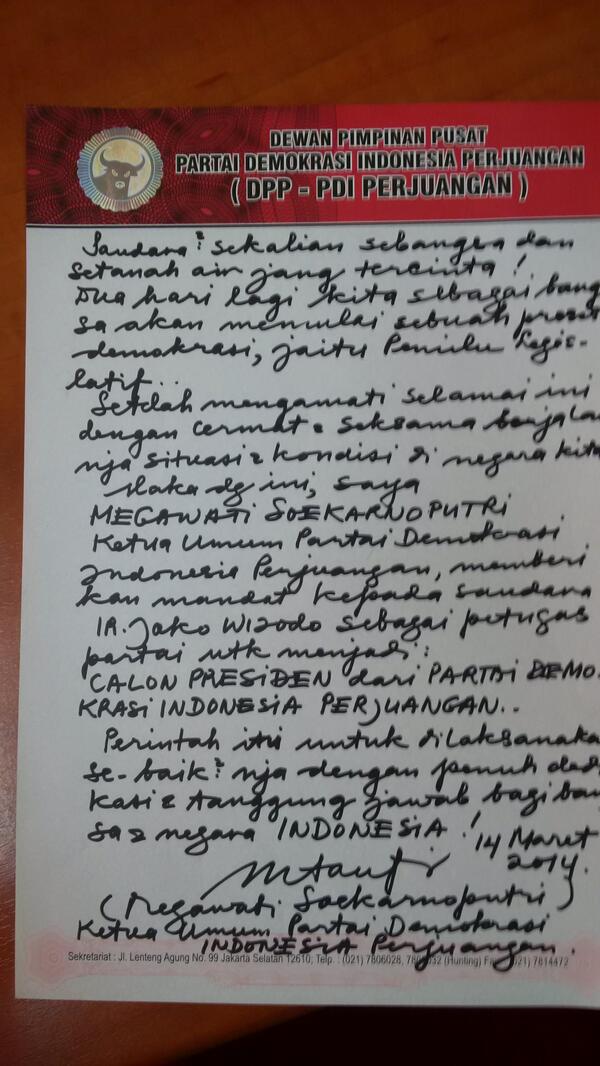 DEWAN PIMPINAN PUSAT
PARTAI DEMOKRASI INDONESIA PERJUANGAN
( DPP - PDI PERJUANGAN )
Saudara² sekalian sebangsa dan
setanah air jang tercinta !
Dua hari lagi kita sebagai bang
sa akan memulai sebuah proses
demokrasi, jaitu Pemilu Legis-
latif..
Setelah mengamati selamai ini
dengan cermat & seksama berjalan
nja situasi & kondisi di negara kita
Maka dg ini, saya
MEGAWATI SOEKARNOPUTRI
Ketua Umum Partai Demokrasi
Indonesia Perjuangan, memberi
kan mandat kepada saudara
IR. Joko WIDODO sebagai petugas
partai utk menjadi :
CALON PRESIDEN dari PARTAI DEMO-
KRASI INDONESIA PERJUANGAN..
Perintah itu untuk dilaksanaka
se-baik² nja dengan penuh dedi
kasi & tanggung jawab bagi ban
sa & negara INDONESIA !
14 Maret
2014.
( Megawati Soekarnoputri )
Ketua Umum Partai Demokrasi
INDONESIA Perjuangan.
Sekretariat : Jl. Lenteng Agung No. 99 Jakarta Selatan 12610, Telp. : (021) 7806028, (Hunting) 7814472